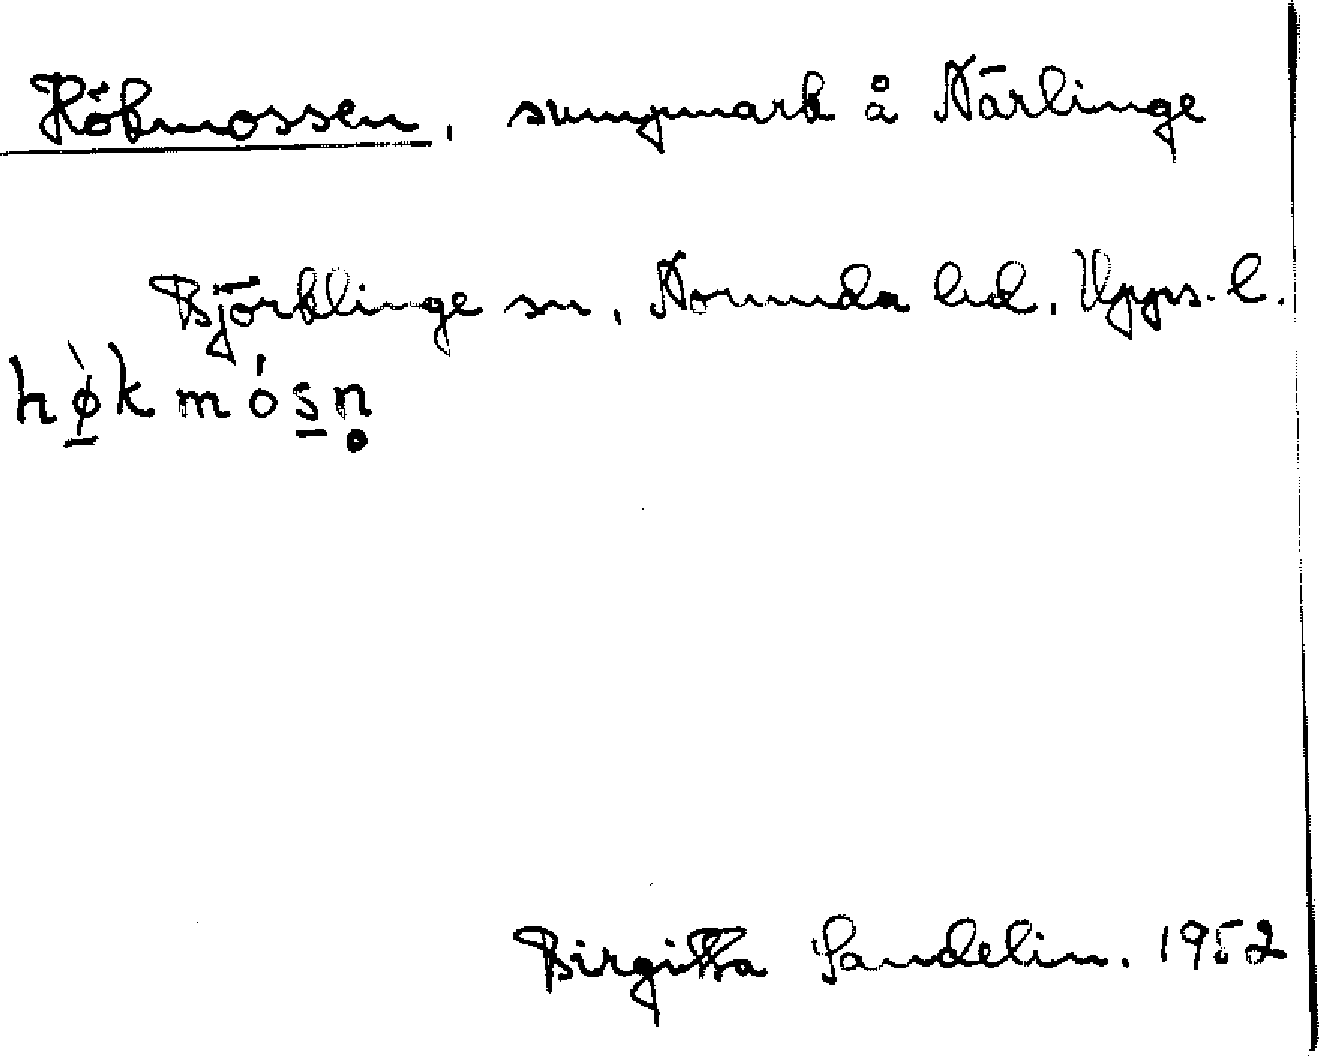 Hökmossen, sumpmark å Närlinge
Björklinge sn, Norunda hd. Upps. l.
hø̱̀kmós̱n̥
Birgitta Sandelin. 1952